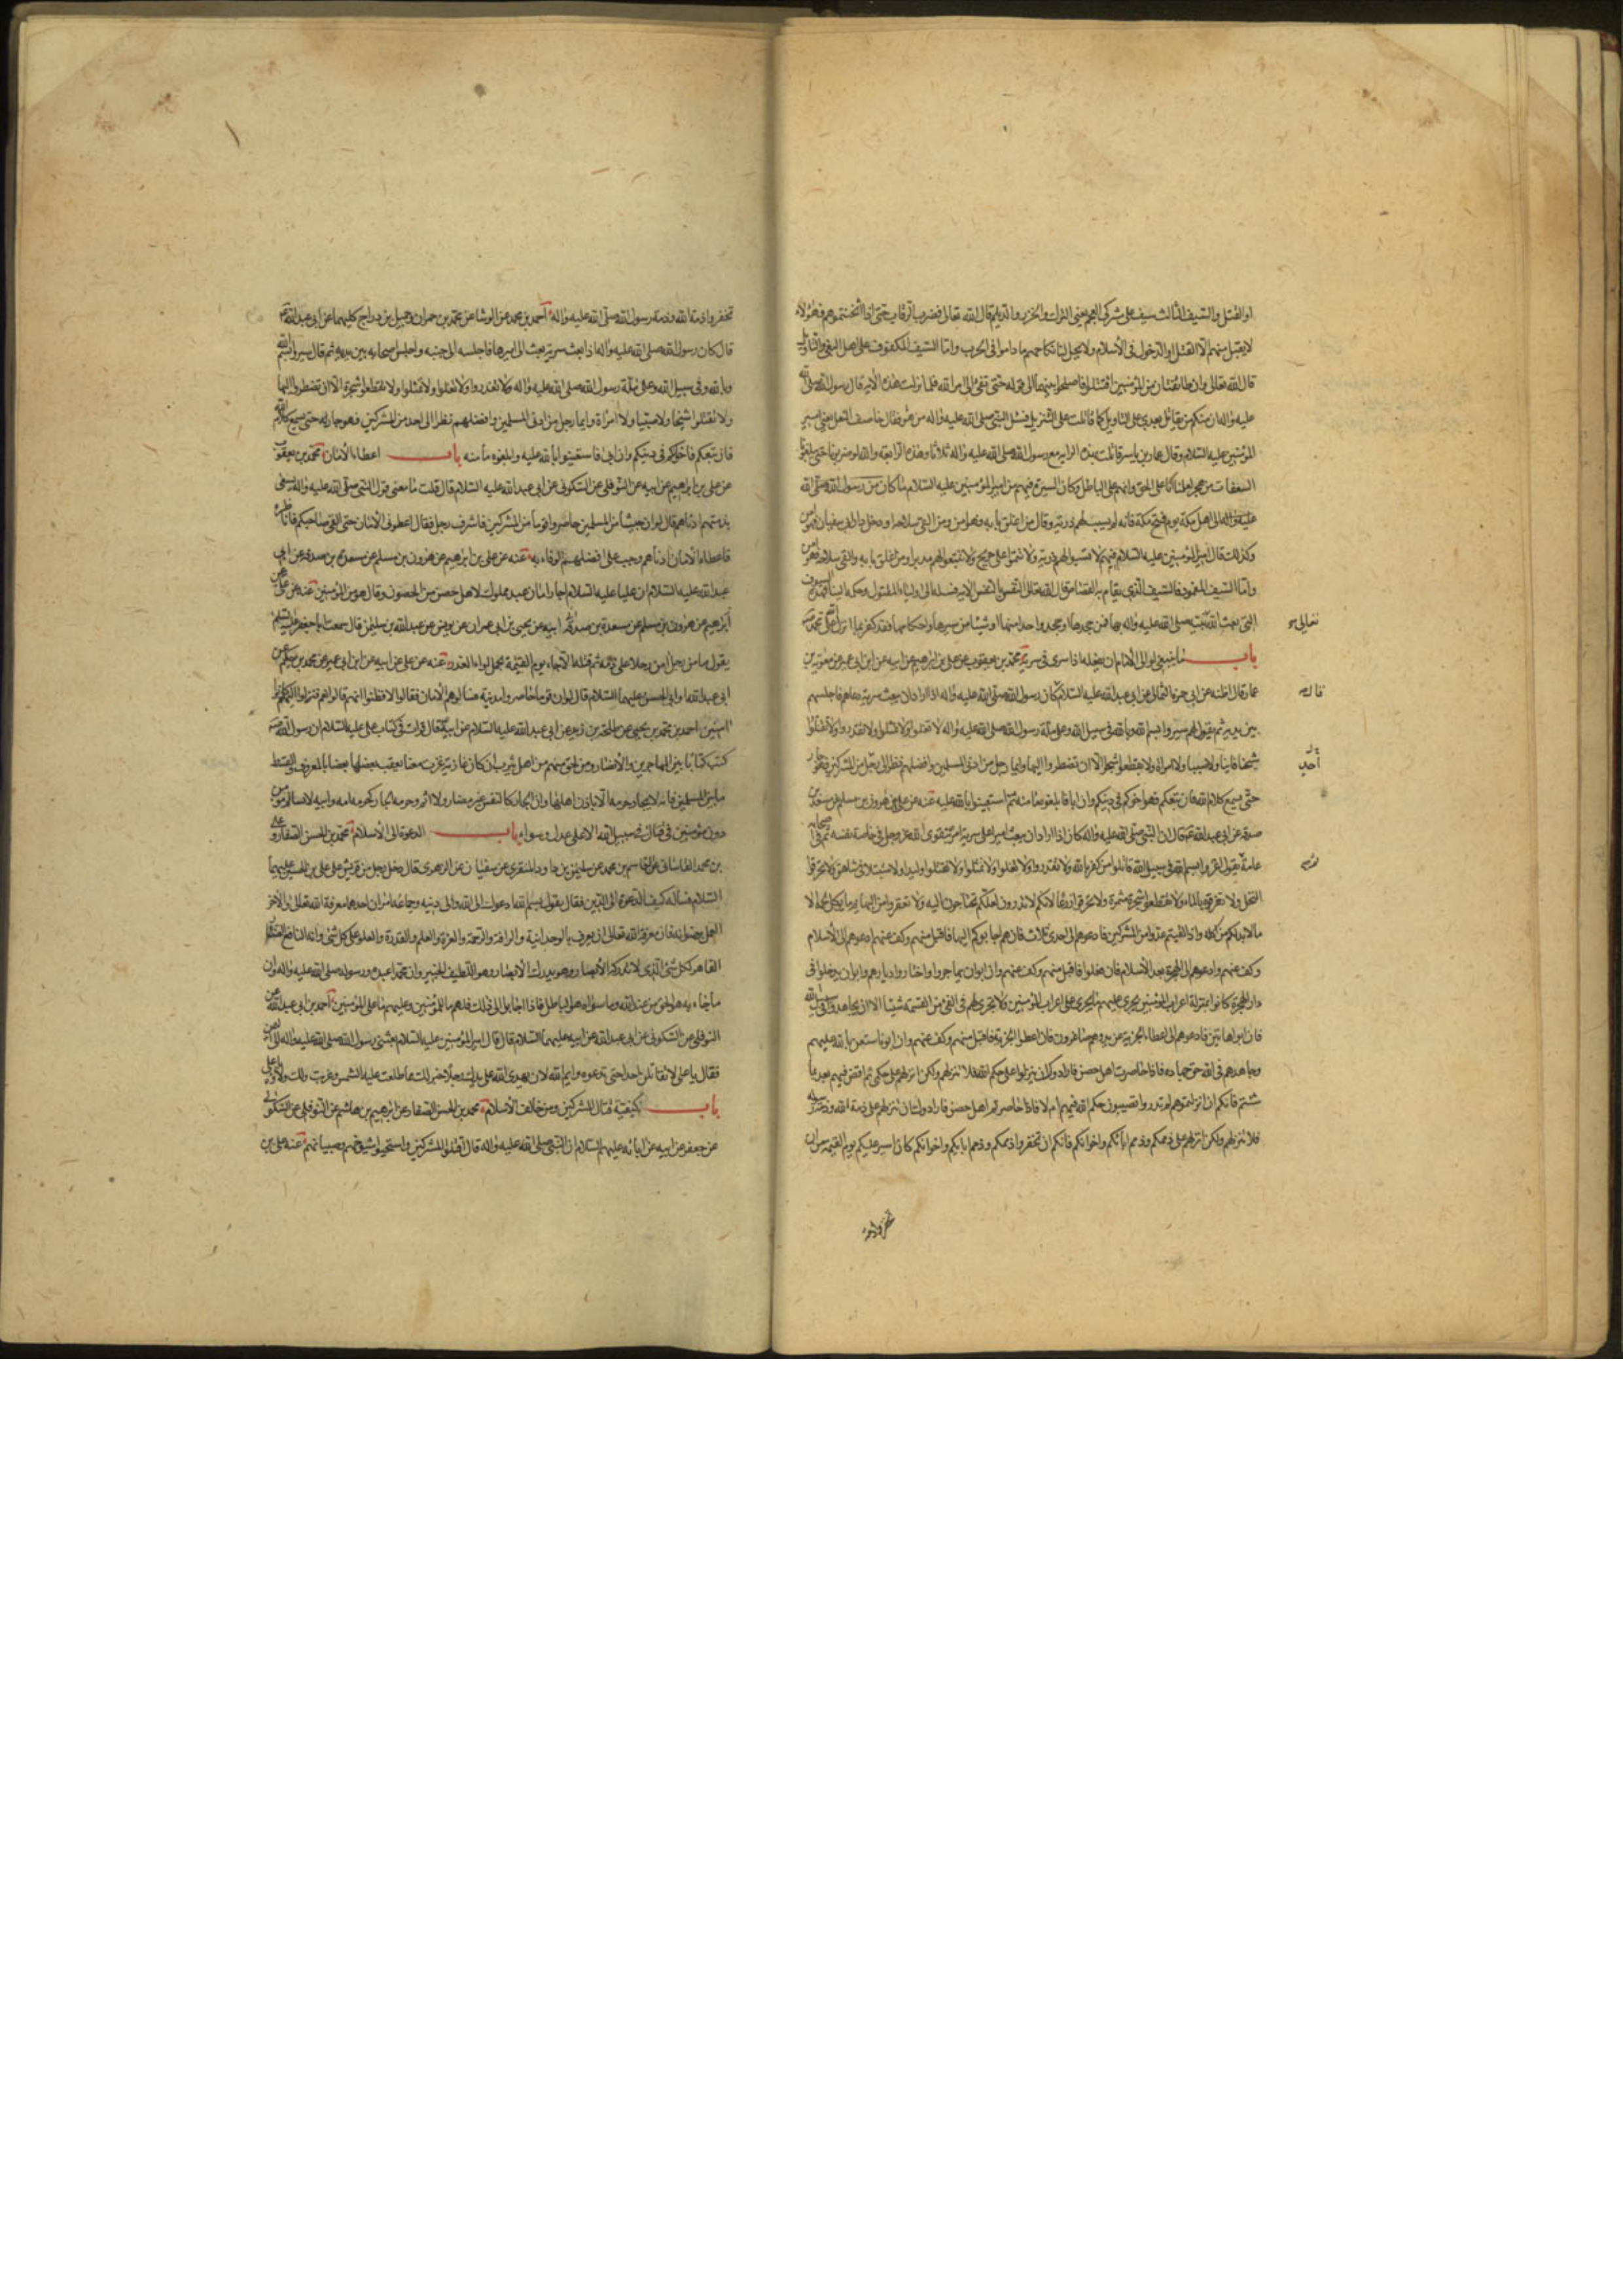 او القتل والسيف الثالث سيف على مشركى العجم يعنى الترك والخزر والديلم قال الله تعالى فضرب الرقاب حتى اذا اثخنتموهم فهؤلاء
لا يقبل منهم الا القتل او الدخول فى الاسلام ولا يحل لنا نكاحهم ما داموا فى الحرب واما السيف المكفوف على اهل البغى والتاويل
قال الله تعالى وان طائفتان من المؤمنين اقتتلوا فاصلحوا بينهما الى قوله حتى تفئ الى امر الله فلما نزلت هذه الاية قال رسول الله صلى الله
عليه واله ان منكم من يقاتل بعدى على التاويل كما قاتلت على التنزيل فسئل النبى صلى الله عليه واله من هو فقال خاصف النعل يعنى امير
المؤمنين عليه السلام وقال عمار بن ياسر قاتلت بهذه الراية مع رسول الله صلى الله عليه واله ثلاثا وهذه الرابعة والله لو ضربونا حتى يبلغوا بنا
السعفات من هجر لعلمنا انا على الحق وانهم على الباطل وكان السيرة فيهم من امير المؤمنين عليه السلام ما كان من رسول الله صلى الله
عليه واله الى اهل مكة يوم فتح مكة فانه لم يسب لهم ذرية وقال من اغلق بابه فهو امن ومن القى سلاحه او دخل دار ابى سفيان فهو امن
وكذلك قال امير المؤمنين عليه السلام فيهم لا تسبوا لهم ذرية ولا تتموا على جريح ولا تتبعوا لهم مدبرا ومن اغلق بابه والقى سلاحه فهو امن
واما السيف المغمود فالسيف الذى يقام به القصاص قال الله تعالى النفس بالنفس الاية فسله الى اولياء المقتول وحكمه الينا فهذه السيوف
التى بعث الله نبيه صلى الله عليه واله بها فمن جحدها او جحد واحدا منها او شيئا من سيرها واحكامها فقد كفر بما انزل الله على محمد
تعالى
باب ما ينبغى لوالى الامام ان يفعله اذا سرى فى سرية محمد بن يعقوب عن على بن ابراهيم عن ابيه عن ابن ابى عمير عن معوية بن
عمار قال اظنه عن ابى حمزة الثمالى عن ابى عبد الله عليه السلام كان رسول الله صلى الله عليه واله اذا اراد ان يبعث سرية دعاهم فاجلسهم
قال
بين يديه ثم يقول لهم سيروا بسم الله وبالله فى سبيل الله وعلى ملة رسول الله صلى الله عليه واله لا تغلوا ولا تمثلوا ولا تغدروا ولا تقتلوا
شيخا فانيا ولا صبيا ولا امراة ولا تقطعوا شجرا الا ان تضطروا اليها وايما رجل من ادنى المسلمين وافضلهم نظر الى رجل من المشركين فهو جار
احد
حتى يسمع كلام الله فان تبعكم فهو اخوكم فى دينكم وان ابا فابلغوه مامنه ثم استعينوا بالله عليه عنه عن على عن هارون بن مسلم عن مسعدة بن
صدقة عن ابى عبد الله قال ان النبى صلى الله عليه واله كان اذا اراد ان يبعث اميرا على سرية امره بتقوى الله عز وجل فى خاصة نفسه ثم فى اصحابه
عامة يقول اغزوا بسم الله وفى سبيل الله قاتلوا من كفر بالله ولا تغدروا ولا تغلوا ولا تمثلوا ولا تقتلوا وليدا ولا متبتلا فى شاهق ولا تحرقوا
النخل ولا تغرقوه بالماء ولا تقطعوا شجرة مثمرة ولا تحرقوا زرعا لانكم لا تدرون لعلكم تحتاجون اليه ولا تعقروا من البهائم ما يؤكل لحمه الا
ما لا بد لكم من اكله واذا لقيتم عدوا من المشركين فادعوهم الى احدى ثلاث فان هم اجابوكم اليها فاقبل منهم وكف عنهم ادعوهم الى الاسلام
وكف عنهم وادعوهم الى الهجرة بعد الاسلام فان فعلوا فاقبل منهم وكف عنهم وان ابوا ان يهاجروا واختاروا ديارهم وابوا ان يدخلوا فى
دار الهجرة كانوا بمنزلة اعراب المؤمنين يجرى عليهم ما يجرى على اعراب المؤمنين ولا يجرى لهم فى الفئ من القسمة شيئا الا ان يجاهدوا فى سبيل الله
فان ابوا هاتين فادعوهم الى اعطاء الجزية عن يد وهم صاغرون فان اعطوا الجزية فاقبل منهم وكف عنهم وان ابوا فاستعن بالله عليهم
وجاهدهم فى الله حق جهاده فاذا حاصرت اهل حصن فارادوك ان ينزلوا على حكم الله فلا تنزلهم ولكن انزلهم على حكمى ثم اقض فيهم بعد ما
شئتم فانكم ان انزلتموهم لم تدروا تصيبون حكم الله فيهم ام لا فاذا حاصرتم اهل حصن فارادوك ان تنزلهم على ذمة الله وذمة رسوله
فلا تنزلهم ولكن انزلهم على ذممكم وذمم ابائكم واخوانكم فانكم ان تخفروا ذممكم وذمم ابائكم واخوانكم كان ايسر عليكم يوم القيمة من ان
تخفروا ذمة
تخفروا ذمة الله وذمة رسول الله صلى الله عليه واله احمد بن محمد عن الوشا عن محمد بن حمران وجميل بن دراج كليهما عن ابى عبد الله
قال كان رسول الله صلى الله عليه واله اذا بعث سرية بعث الى اميرها فاجلسه الى جنبه واجلس اصحابه بين يديه ثم قال سيروا بسم الله
وبالله وفى سبيل الله وعلى ملة رسول الله صلى الله عليه واله ولا تغدروا ولا تغلوا ولا تمثلوا ولا تقطعوا شجرة الا ان تضطروا اليها
ولا تقتلوا شيخا ولا صبيا ولا امراة وايما رجل من ادنى المسلمين وافضلهم نظر الى احد من المشركين فهو جار له حتى يسمع كلام الله
فان تبعكم فاخوكم فى دينكم وان ابى فاستعينوا بالله عليه وابلغوه مامنه باب اعطاء الامان محمد بن يعقوب
عن على بن ابراهيم عن ابيه عن النوفلى عن السكونى عن ابى عبد الله عليه السلام قال قلت ما معنى قول النبى صلى الله عليه واله يسعى
بذمتهم ادناهم قال لو ان جيشا من المسلمين حاصروا قوما من المشركين فاشرف رجل فقال اعطونى الامان حتى القى صاحبكم فاناظره
فاعطاه الامان ادناهم وجب على افضلهم الوفاء به عنه عن على بن ابراهيم عن هرون بن مسلم عن مسعدة بن صدقة عن ابى
عبد الله عليه السلام ان عليا عليه السلام اجاز امان عبد مملوك لاهل حصن من الحصون وقال هو من المؤمنين عنه عن على بن
ابراهيم عن هرون بن مسلم عن مسعدة بن صدقة ابيه عن يحيى بن ابى عمران عن يونس عن عبد الله بن سليمن قال سمعت ابا جعفر عليه السلم
يقول ما من رجل امن رجلا على ذمة ثم قتله الا جاء يوم القيمة يحمل لواء الغدر عنه عن على عن ابيه عن ابن ابى عمير عن محمد بن حكيم عن
ابى عبد الله او ابى الحسن عليهما السلام قال لو ان قوما حاصروا مدينة فسالوهم الامان فقالوا لا فظنوا انهم قالوا نعم فنزلوا اليهم كانوا
امنين احمد بن محمد بن يحيى عن طلحة بن زيد عن ابى عبد الله عليه السلام عن ابيه قال قرات فى كتاب على عليه السلام ان رسول الله
كتب كتابا بين المهاجرين والانصار ومن لحق بهم من اهل يثرب ان كان غازية غزت معنا يعقب بعضها بعضا بالمعروف والقسط
ما بين المسلمين فانه لا يجار حرمة الا باذن اهلها وان الجار كالنفس غير مضار ولا اثم وحرمة الجار كحرمة امه وابيه لا يسالم مؤمن
دون مؤمنين فى قتال فى سبيل الله الا على عدل وسواء باب الدعوة الى الاسلام محمد بن الحسن الصفار عن على
بن محمد القاسانى عن القاسم بن محمد عن سليمن بن داود المنقرى عن سفيان عن الزهرى قال دخل رجل من قريش على على بن الحسين عليهما
السلام فساله كيف الدعوة الى الدين فقال يقول بسم الله ادعوك الى الله والى دينه وجماعه امران احدهما معرفة الله تعالى والاخر
العمل برضوانه فان معرفة الله تعالى ان يعرف بالوحدانية والرافة والرحمة والعزة والعلم والقدرة والعلو على كل شئ وانه النافع الضار
القاهر لكل شئ الذى لا تدركه الابصار وهو يدرك الابصار وهو اللطيف الخبير وان محمدا عبده ورسوله صلى الله عليه واله وان
ما جاء به هو الحق من عند الله وما سواه هو الباطل فاذا اجابوا الى ذلك فلهم ما للمؤمنين وعليهم ما على المؤمنين احمد بن ابى عبد الله عن
النوفلى عن السكونى عن ابى عبد الله عن ابيه عليهما السلام قال قال امير المؤمنين عليه السلام بعثنى رسول الله صلى الله عليه واله الى اليمن
فقال يا على لا تقاتلن احدا حتى تدعوه وايم الله لان يهدى الله على يديك رجلا خير لك مما طلعت عليه الشمس وغربت ولك ولاؤه يا على
باب كيفية قتال المشركين ومن خالف الاسلام محمد بن الحسن الصفار عن ابراهيم بن هاشم عن النوفلى عن السكونى
عن جعفر عن ابيه عن ابائه عليهم السلام ان النبى صلى الله عليه واله قال اقتلوا المشركين واستحيوا شيوخهم وصبيانهم عنه على بن